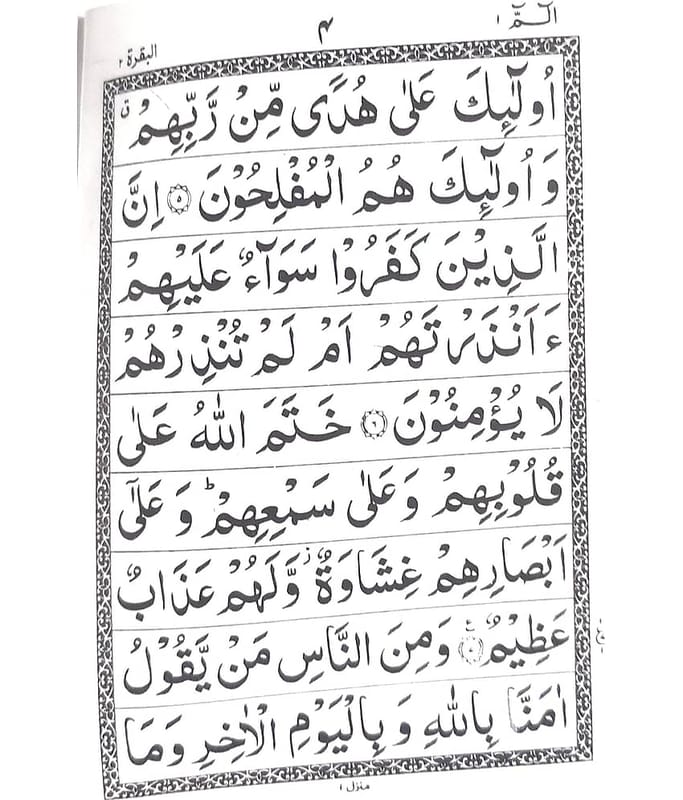 الٓمّٓ ١
۴
البقرة ٢
اُولٰٓئِكَ عَلٰى هُدًى مِّنْ رَّبِّهِمْ ۙ
وَاُولٰٓئِكَ هُمُ الْمُفْلِحُوْنَ ۝٥ اِنَّ
الَّذِيْنَ كَفَرُوْا سَوَآءٌ عَلَيْهِمْ
ءَاَنْذَرْتَهُمْ اَمْ لَمْ تُنْذِرْهُمْ
لَا يُؤْمِنُوْنَ ۝٦ خَتَمَ اللّٰهُ عَلٰى
قُلُوْبِهِمْ وَعَلٰى سَمْعِهِمْ ؕ وَعَلٰٓى
اَبْصَارِهِمْ غِشَاوَةٌ ؗ وَّلَهُمْ عَذَابٌ
عَظِيْمٌ ۝ وَمِنَ النَّاسِ مَنْ يَّقُوْلُ
اٰمَنَّا بِاللّٰهِ وَبِالْيَوْمِ الْاٰخِرِ وَمَا
منزل ١